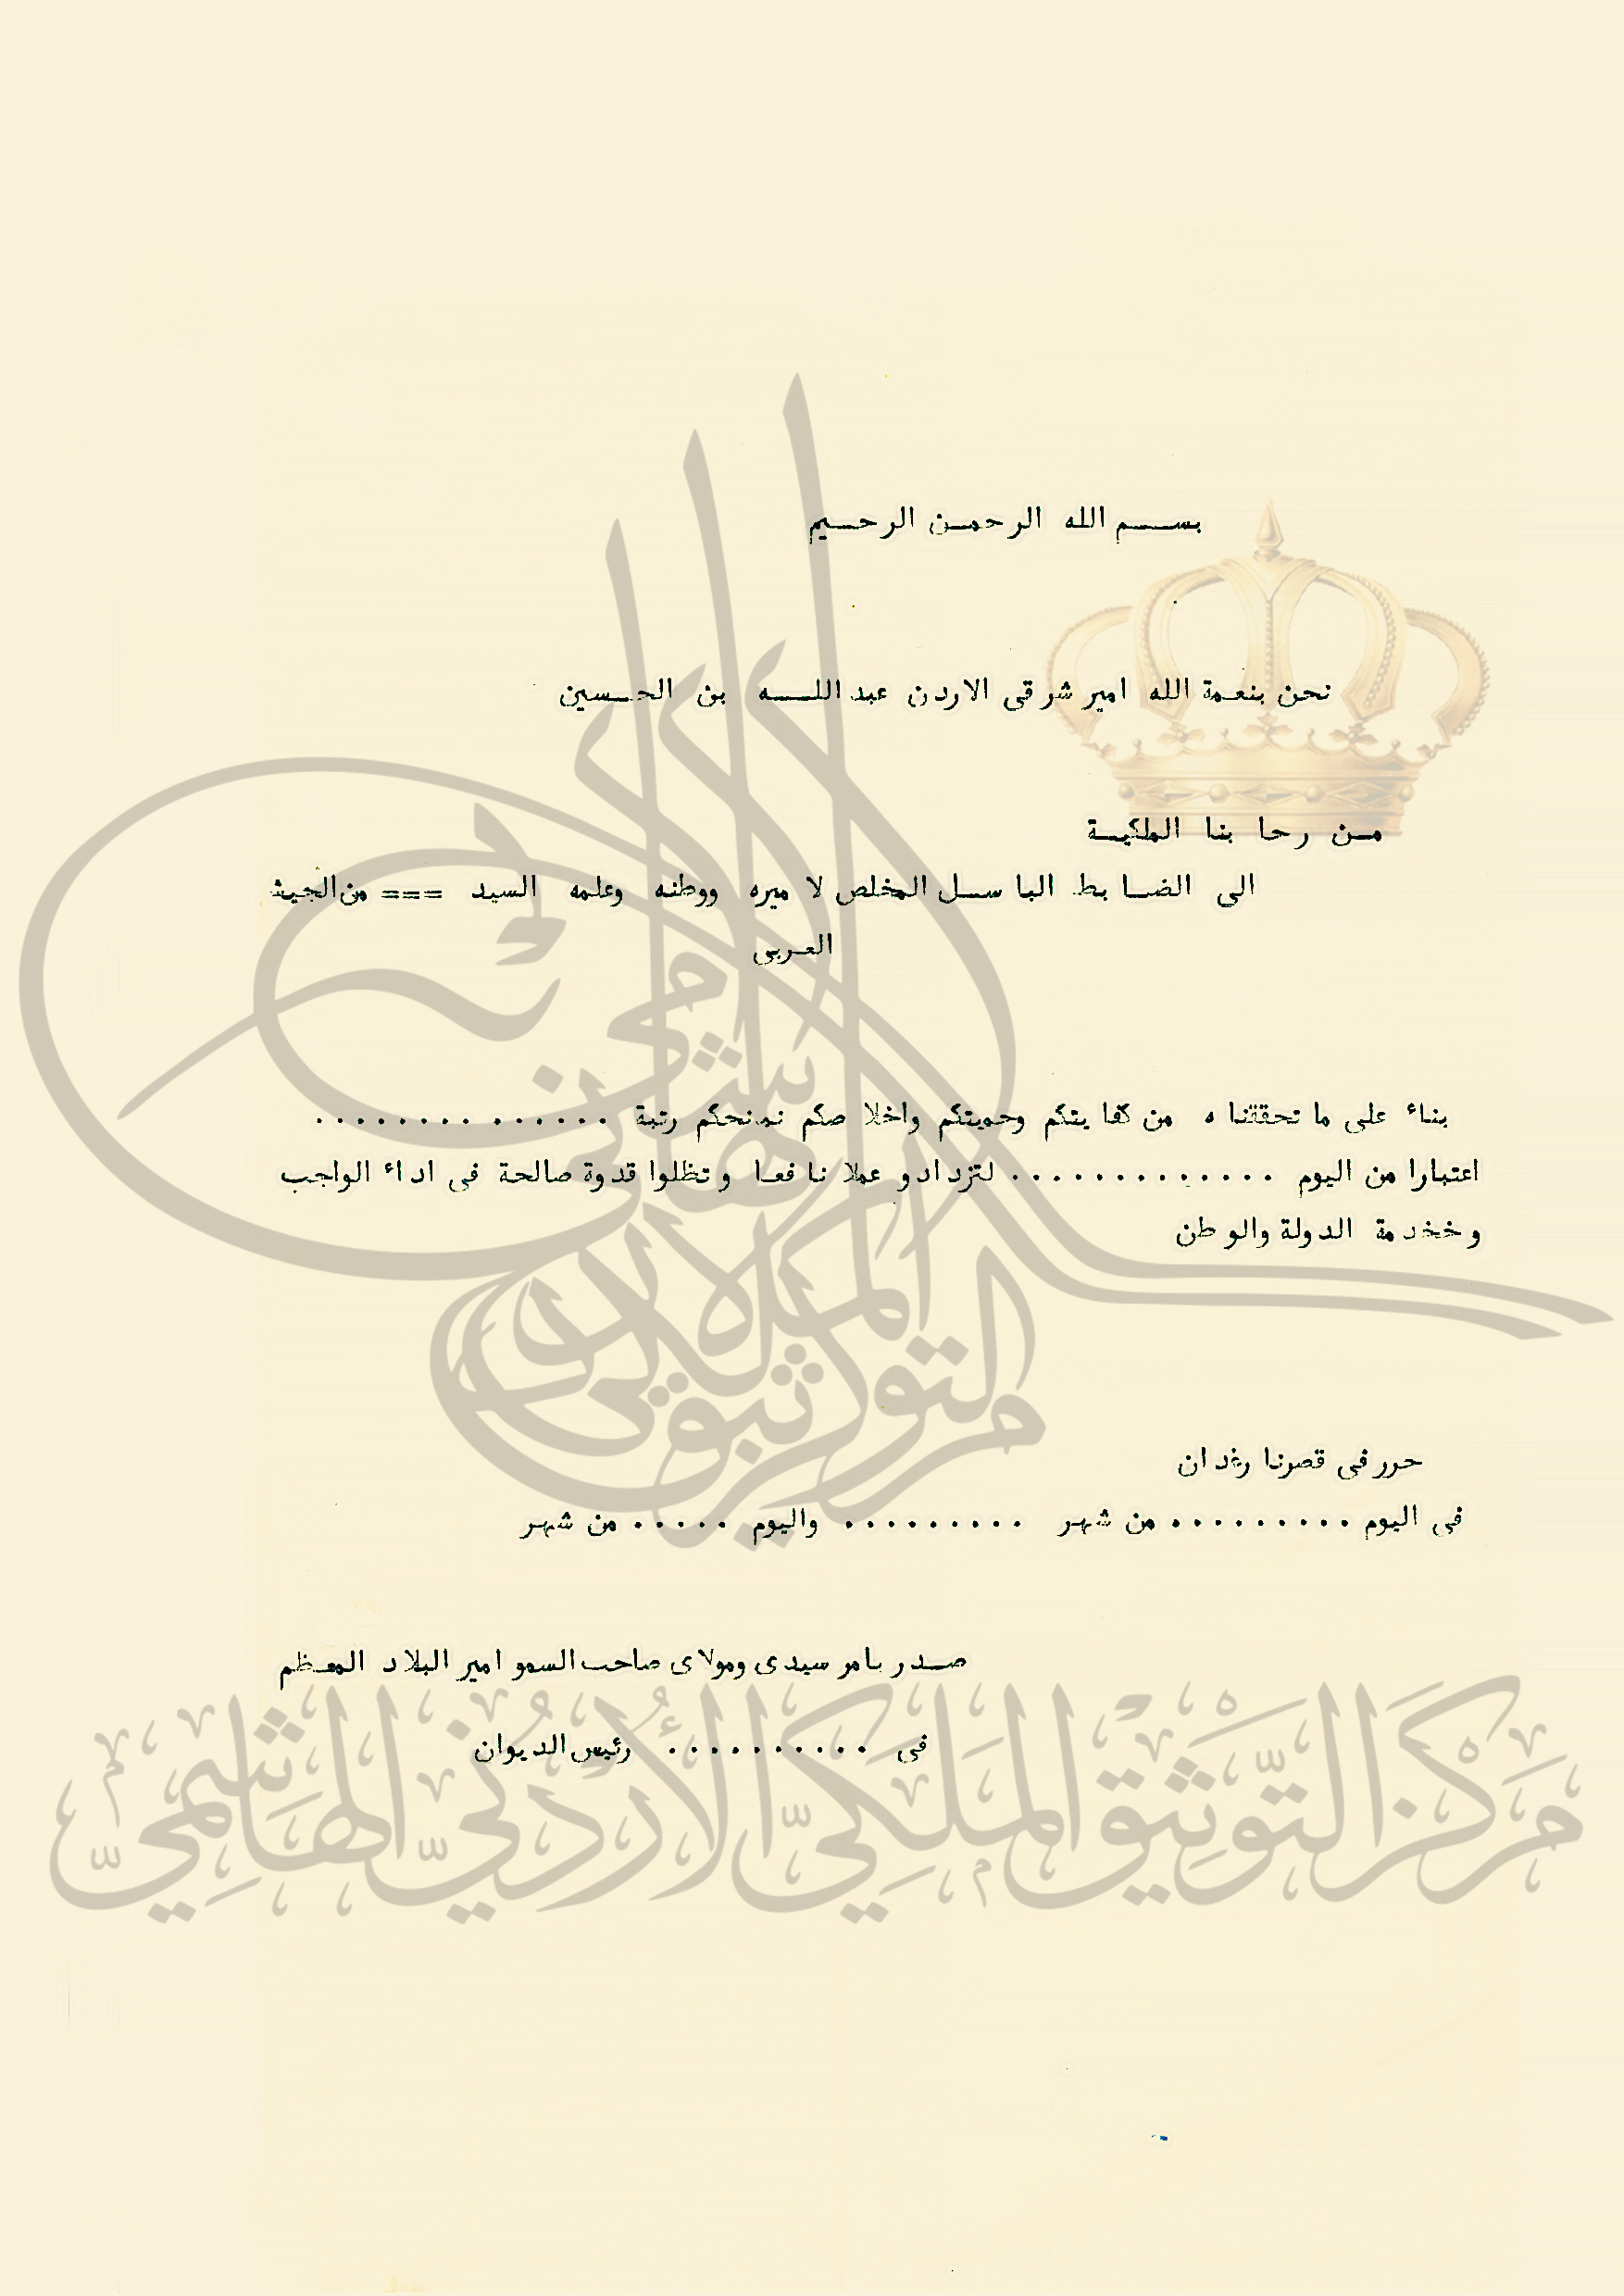 بسم الله الرحمن الرحيم
نحن بنعمة الله امير شرقى الاردن عبد الله بن الحسين
من رحابنا الملكية
الى الضابط الباسل المخلص لاميره ووطنه وعلمه السيد === من الجيش
العربى
بناء على ما تحققناه من كفايتكم وحميتكم واخلاصكم نمنحكم رتبة ..............
اعتبارا من اليوم ............. لتزدادو عملا نافعا وتظلوا قدوة صالحة فى اداء الواجب
وخخدمة الدولة والوطن
حرر فى قصرنا رغدان
فى اليوم ......... من شهر ......... واليوم ..... من شهر
صدر بامر سيدى ومولاى صاحب السمو امير البلاد المعظم
فى .......... رئيس الديوان
مركز التوثيق الملكي الأردني الهاشمي